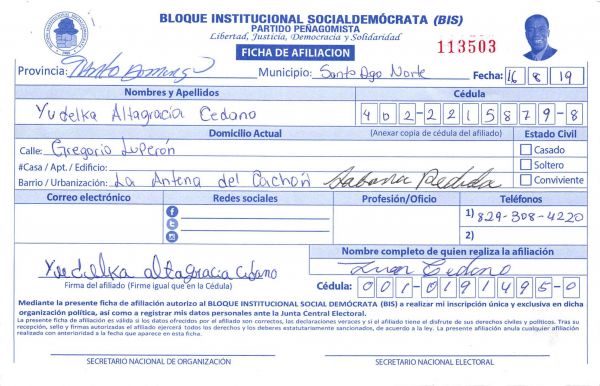 BLOQUE INSTITUCIONAL SOCIALDEMÓCRATA (BIS)
PARTIDO PEÑAGOMISTA
Libertad, Justicia, Democracia y Solidaridad
FICHA DE AFILIACION
113503
Provincia: Santo Domingo Municipio: Santo Dgo Norte Fecha: 16 8 19
Nombres y Apellidos Cédula
Yudelka Altagracia Cedano 402-2215879-8
Domicilio Actual (Anexar copia de cédula del afiliado) Estado Civil
Calle: Gregorio Luperón Casado
#Casa / Apt. / Edificio: Soltero
Barrio / Urbanización: La Antena del Cachón Sabana Perdida Conviviente
Correo electrónico Redes sociales Profesión/Oficio Teléfonos
1) 829-308-4220
2)
Nombre completo de quien realiza la afiliación
Yudelka altagracia cedano Juan Cedano
Firma del afiliado (Firme igual que en la Cédula) Cédula: 001-0191495-0
Mediante la presente ficha de afiliación autorizo al BLOQUE INSTITUCIONAL SOCIAL DEMÓCRATA (BIS) a realizar mi inscripción única y exclusiva en dicha
organización política, así como a registrar mis datos personales ante la Junta Central Electoral.
La presente ficha de afiliación es válida si los datos ofrecidos por el afiliado son correctos, las declaraciones veraces y si el afiliado tiene el disfrute de sus derechos civiles y políticos. Tras su
recepción, sello y firmas autorizadas el afiliado ejercerá todos los derechos y los deberes estatutariamente sancionados, de acuerdo a la ley. La presente afiliación anula cualquier afiliación
realizada con anterioridad a la fecha que aparece en esta ficha.
SECRETARIO NACIONAL DE ORGANIZACIÓN SECRETARIO NACIONAL ELECTORAL